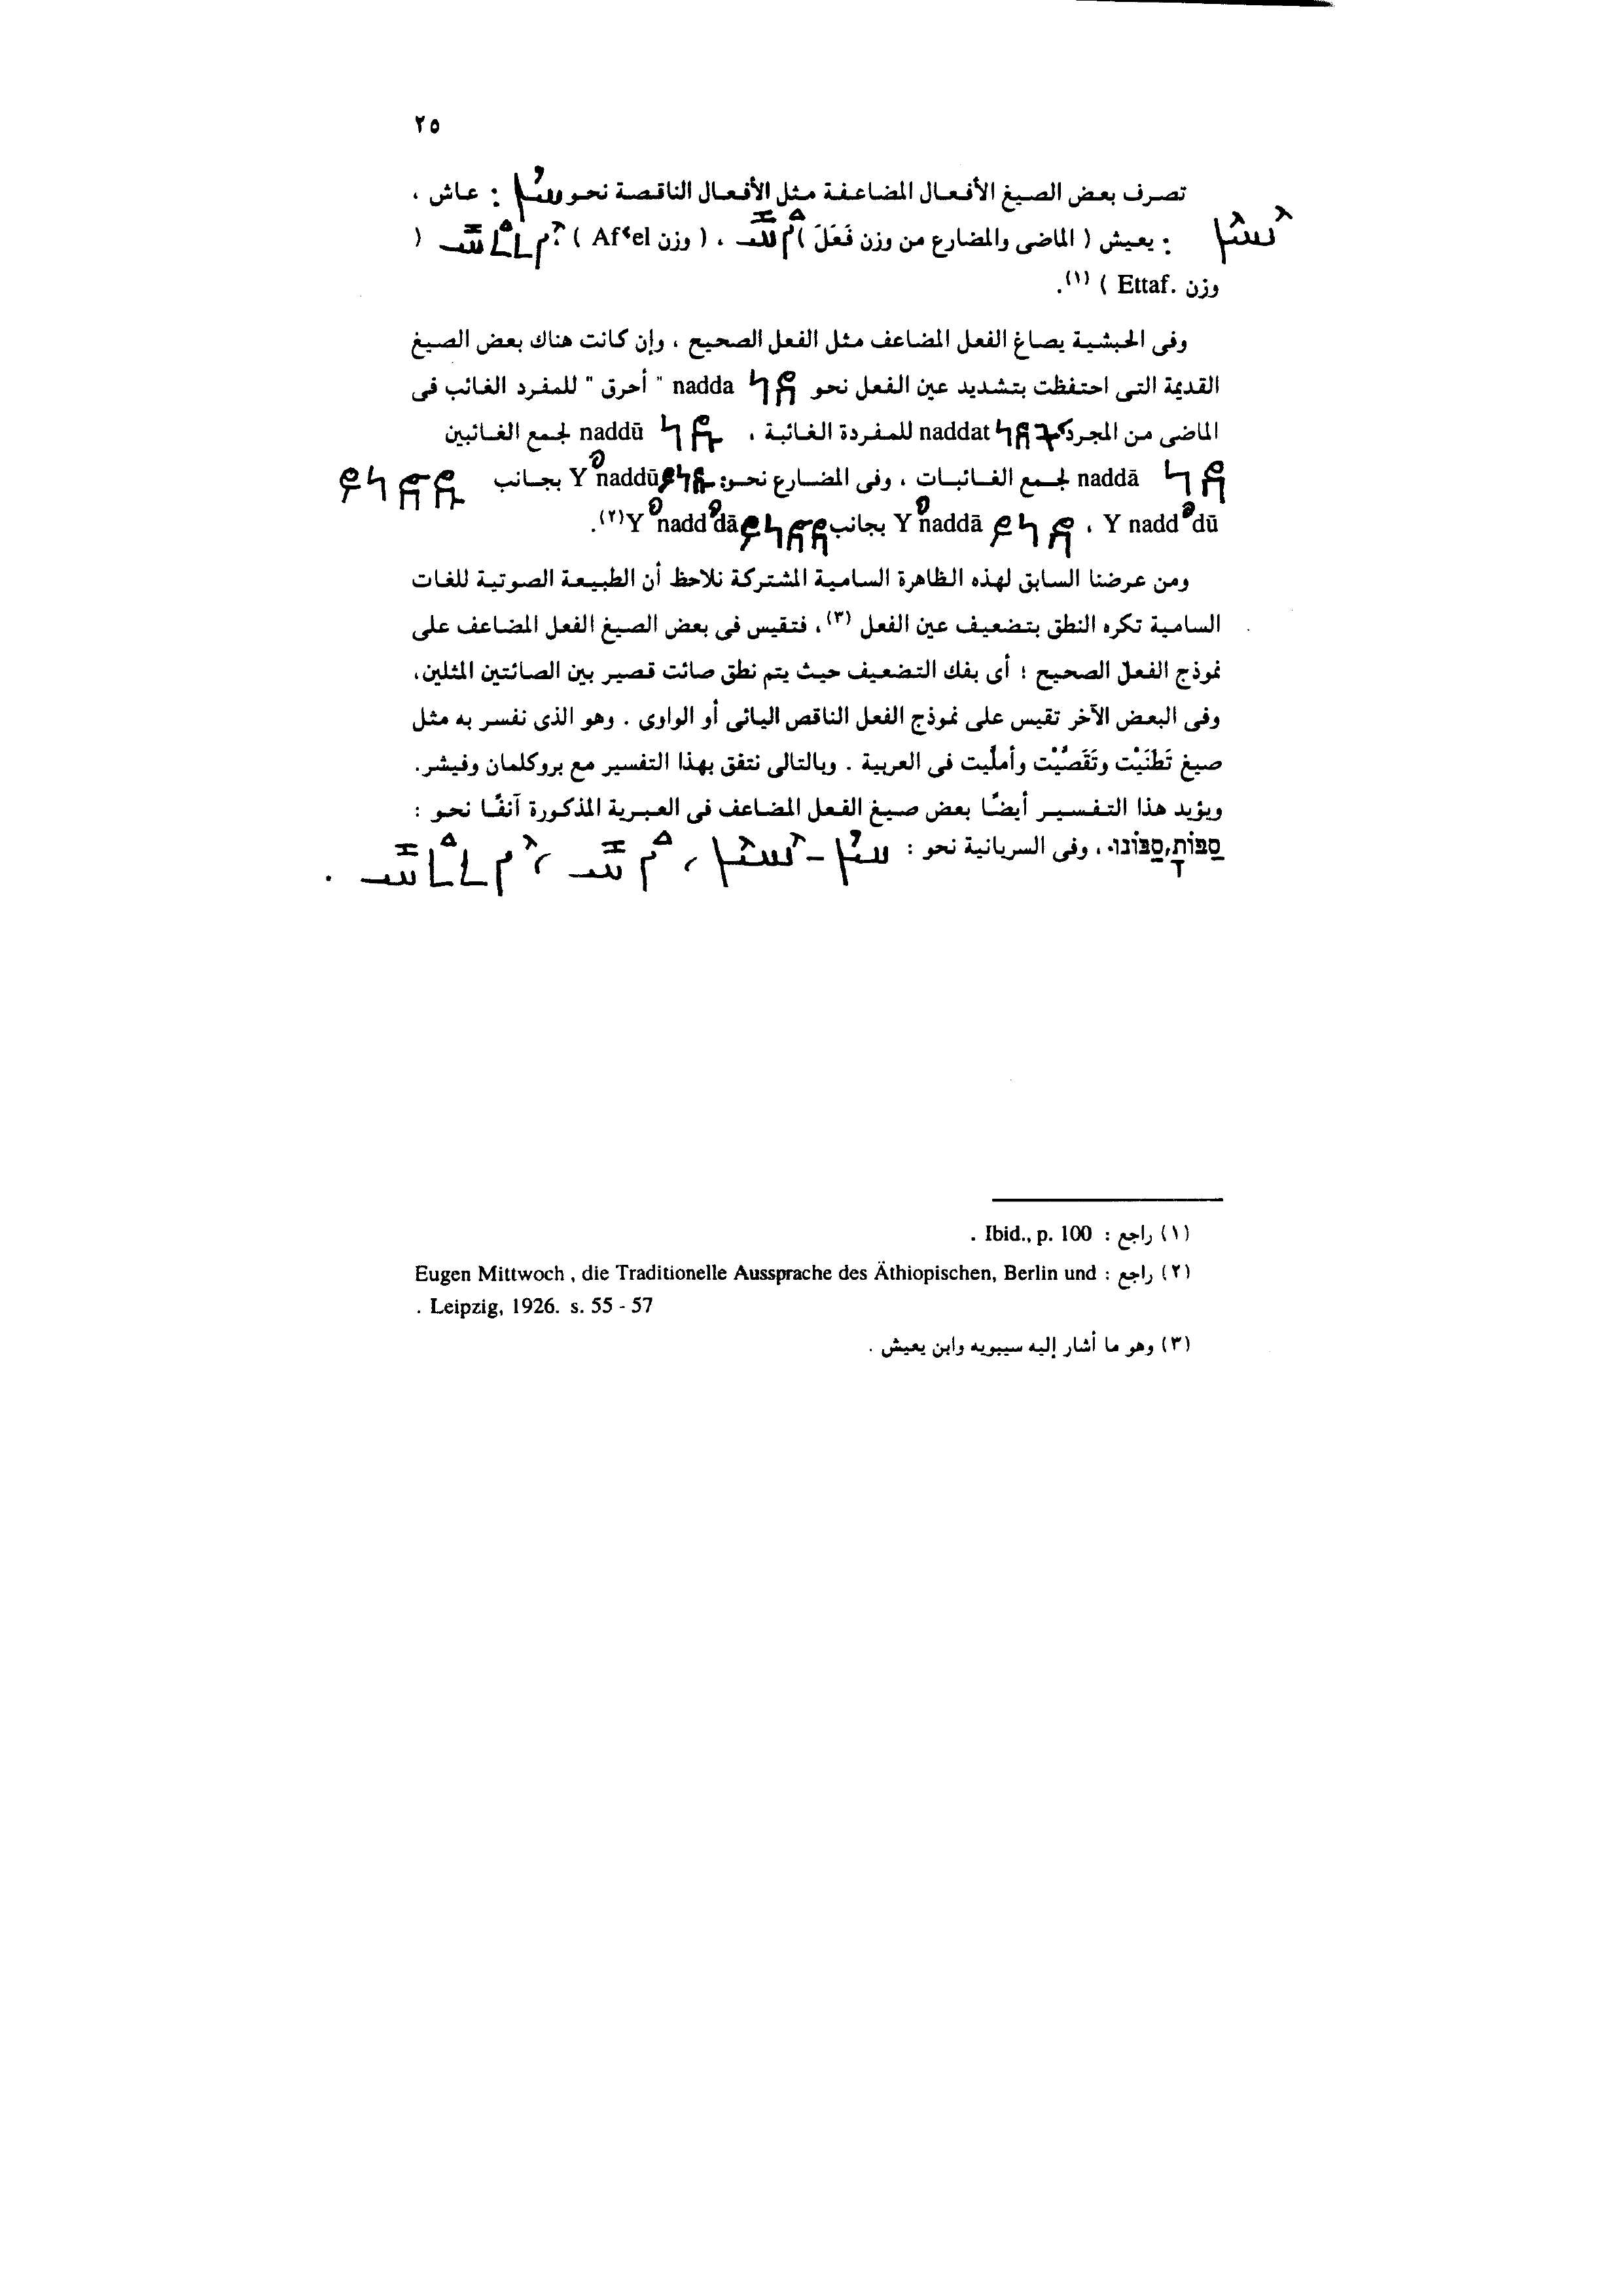 ٢٥
تصرف بعض الصيغ الأفعال المضاعفة مثل الأفعال الناقصة نحو : عاش ،
: يعيش ( الماضى والمضارع من وزن فَعَلَ ) ، ( وزن Afʿel ) ، (
وزن Ettaf. ) (١).
وفى الحبشية يصاغ الفعل المضاعف مثل الفعل الصحيح ، وإن كانت هناك بعض الصيغ
القديمة التى احتفظت بتشديد عين الفعل نحو ነደ nadda " أحرق " للمفرد الغائب فى
الماضى من المجرد ነደት naddat للمفردة الغائبة ، ነዱ naddū لجمع الغائبين
ነዳ naddā لجمع الغائبات ، وفى المضارع نحو: ይነዱ Yᵊnaddū بجانب ይነድዱ
Y naddᵊdū ، ይነዳ Yᵊnaddā بجانب ይነድዳ Yᵊnaddᵊdā(٢).
ومن عرضنا السابق لهذه الظاهرة السامية المشتركة نلاحظ أن الطبيعة الصوتية للغات
السامية تكره النطق بتضعيف عين الفعل (٣)، فتقيس فى بعض الصيغ الفعل المضاعف على
نموذج الفعل الصحيح ؛ أى بفك التضعيف حيث يتم نطق صائت قصير بين الصائتين المثلين،
وفى البعض الآخر تقيس على نموذج الفعل الناقص اليائى أو الواوى . وهو الذى نفسر به مثل
صيغ تَظَنَيْت وتَقَصَّيْت وأملَيت فى العربية . وبالتالى نتفق بهذا التفسير مع بروكلمان وفيشر.
ويؤيد هذا التفسير أيضًا بعض صيغ الفعل المضاعف فى العبرية المذكورة آنفًا نحو :
، وفى السريانية نحو :
(١) راجع : Ibid., p. 100 .
(٢) راجع : Eugen Mittwoch , die Traditionelle Aussprache des Äthiopischen, Berlin und
Leipzig, 1926. s. 55 - 57 .
(٣) وهو ما أشار إليه سيبويه وابن يعيش .